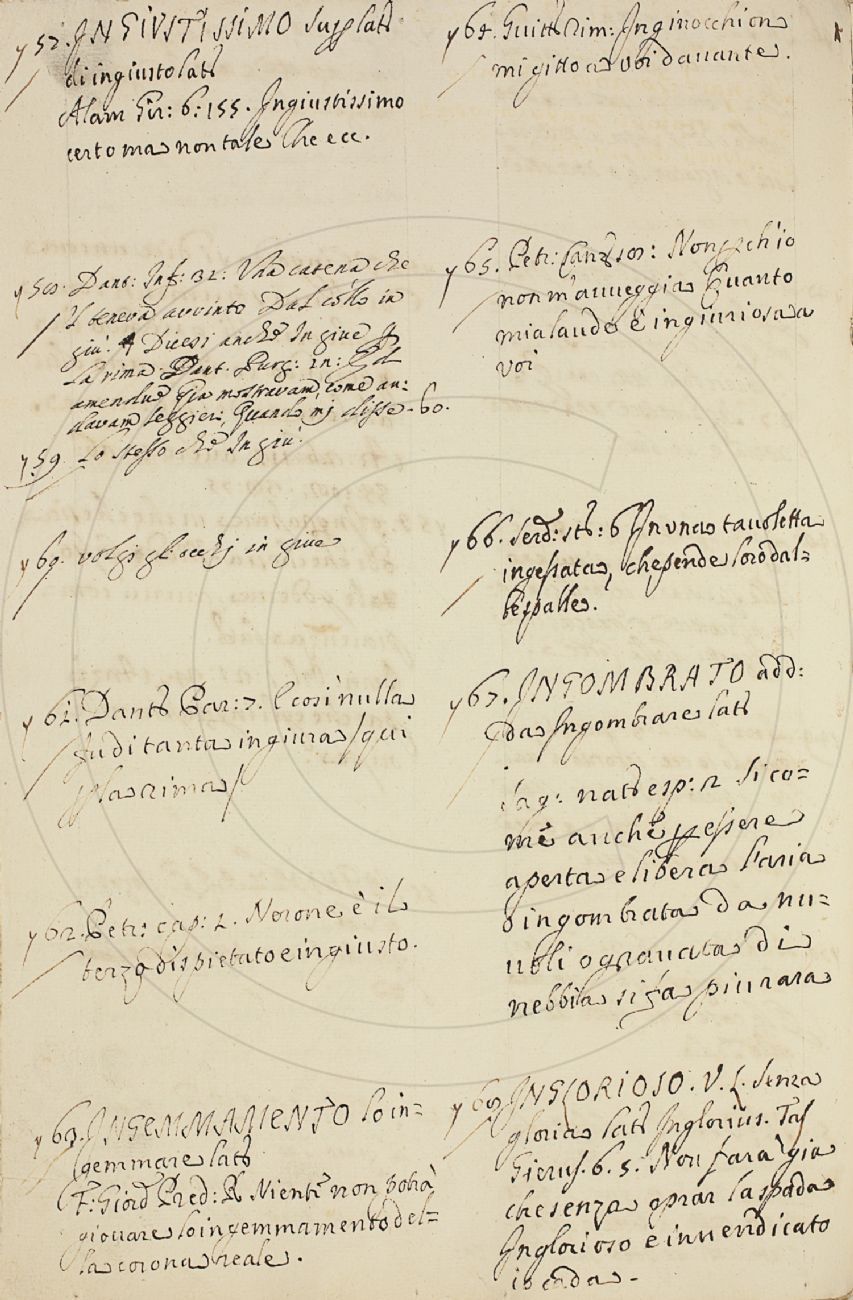 y 57. INGIUSTISSIMO Supplat
di ingiusto lat
Alam Gir: 6: 155. Ingiustissimo
certo ma non tale Che ecc.
y 58. Dant: Inf: 32: Una catena che
'l teneva avvinto Dal collo in
giù. Dicesi anche In giue p
la rima. Dant. Purg: 12: Ed
amendue Già mostravam, come an:
davam leggier; Quando mi disse. 60.
y 59. Lo stesso che In giù.
y 60. volgi gli occhj in giue
y 61. Dant Par: 7. E così nulla
fu di tanta ingiura / qui
p la rima /
y 62. Petr: cap: 2. Nerone è il
terzo dispietato e ingiusto.
y 63. INGEMMAMENTO lo in=
gemmare lat
F: Giord Pred: R. Niente non potrà
giovare lo ingemmamento del=
la corona reale.
y 64. Guitt Rim: In ginocchion
mi gitto a voi davante.
y 65. Petr: Canz Non pch'io
non m'avveggia Quanto
mia laude è ingiuriosa a
voi
y 66. Serd: st: 6 In una tavoletta
ingessata, che pende loro dal=
le spalle.
y 67. INGOMBRATO add:
da Ingombrare lat
Sag: nat esp: 2 Si co=
me anche p essere
aperta e libera l'aria
o ingombrata da nu=
voli o gravata di
nebbia si fa piu rara
y 69. INGLORIOSO. V. L. Senza
gloria lat Inglorius. Tas
Gierus. 6. 5. Non sarà già
che senza oprar la spada
Inglorioso e invendicato
io cada.